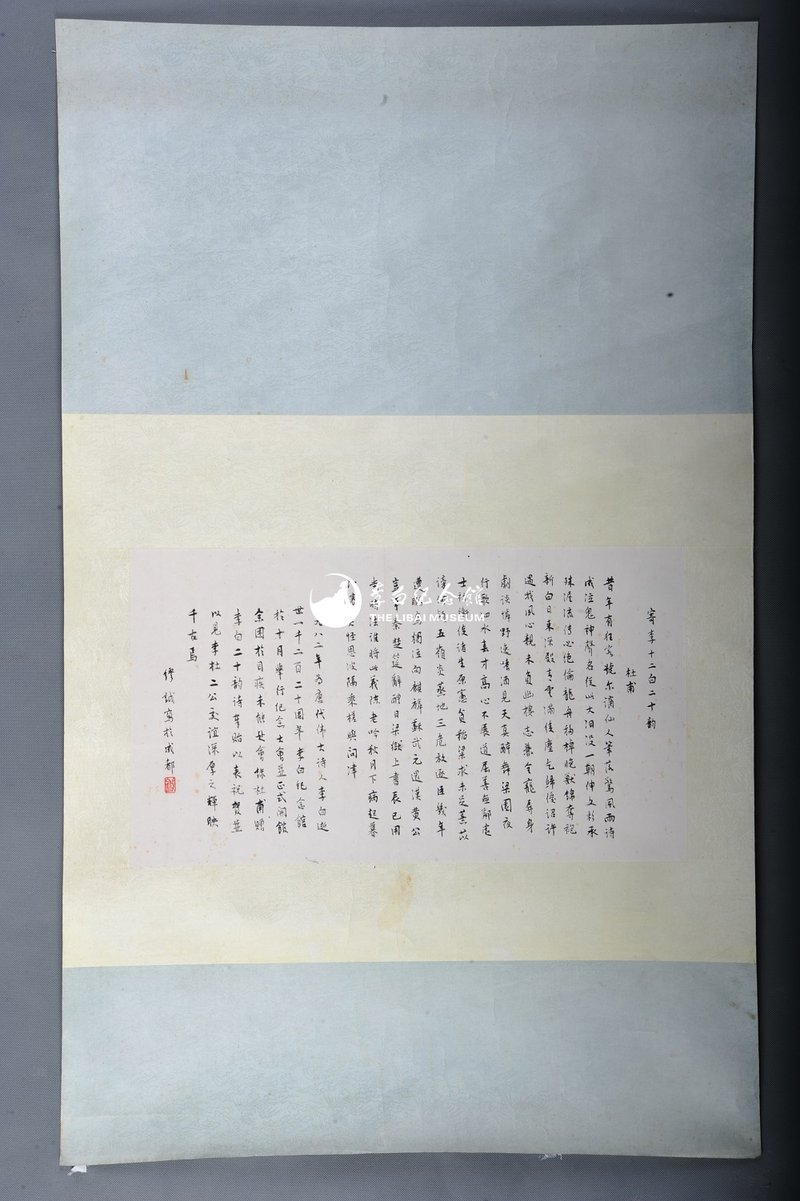 寄李十二白二十韵
杜甫
昔年有狂客號尔谪仙人筆落驚風雨诗
成泣鬼神聲名從此大汩没一朝伸文彩承
殊渥流传必绝倫龍舟移棹晚獸錦奪袍
新白日来深殿青雲满後塵乞歸優诏许
遇我夙心親未負幽棲志兼全寵辱身
劇谈憐野逸嗜酒見天真醉舞梁園夜
行歌泗水春才高心不展道屈善無鄰處
士祢衡俊诸生原憲貧稻粱求未足薏苡
谤何频五嶺炎蒸地三危放逐臣幾年
遭鵩鳥獨泣向麒麟蘇武元還漢黄公
豈事秦楚筵辭醴日梁獄上書辰已用
當時法誰將此義陳老吟秋月下病起暮
江濱莫怪恩波隔乘槎與問津
一九八二年為唐代偉大诗人李白逝
世一千二百二十周年李白纪念館
於十月舉行纪念大會並正式開館
余困於目疾未能与會録杜甫贈
李白二十韵诗奉贻以表祝賀並
以見李杜二公交誼深厚之輝映
千古焉
缪钺寫於成都
李白纪念館
THE LIBAI MUSEUM